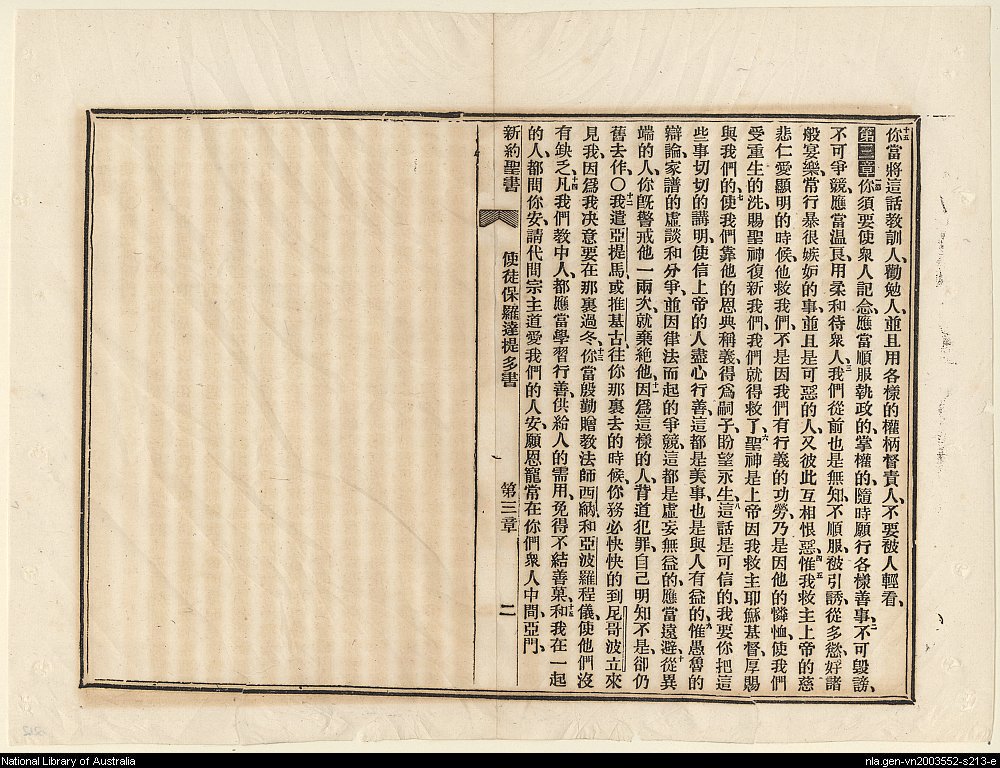 十五你當將這話教訓人、勸勉人、並且用各樣的權柄督責人、不要被人輕看、
第三章一你須要使衆人記念、應當順服執政的、掌權的、隨時願行各樣善事、二不可毀謗、
不可爭競、應當温良、用柔和待衆人、三我們從前也是無知、不順服、被引誘、從多慾、好諸
般宴樂、常行暴很嫉妬的事、並且是可惡的人、又彼此互相恨惡、四惟我救主上帝的慈
悲仁愛顯明的時候、五他救我們、不是因我們有行義的功勞、乃是因他的憐恤、使我們
受重生的洗、賜聖神復新我們、我們就得救了、六聖神是上帝因我救主耶穌基督、厚賜
與我們的、七使我們靠他的恩典稱義、得爲嗣子、盼望永生、八這話是可信的、我要你把這
些事切切的講明、使信上帝的人盡心行善、這都是美事、也是與人有益的、九惟愚魯的
辯論、家譜的虛談、和分爭、並因律法而起的爭競、這都是虛妄無益的、應當遠避、十從異
端的人、你旣警戒他一兩次、就棄絶他、十一因爲這樣的人、背道犯罪、自己明知不是、卻仍
舊去作、○十二我遣亞提馬、或推基古、往你那裏去的時候、你務必快快的到尼哥波立來
見我、因爲我決意要在那裏過冬、十三你當殷勤贈教法師西納、和亞波羅程儀、使他們沒
有缺乏、十四凡我們教中人、都應當學習行善、供給人的需用、免得不結善菓、十五和我在一起
的人、都問你安、請代問宗主道愛我們的人安、願恩寵當在你們衆人中間、亞門、
新約聖書 使徒保羅達提多書 第三章 二
National Library of Australia
nla.gen-vn2003552-s213-e